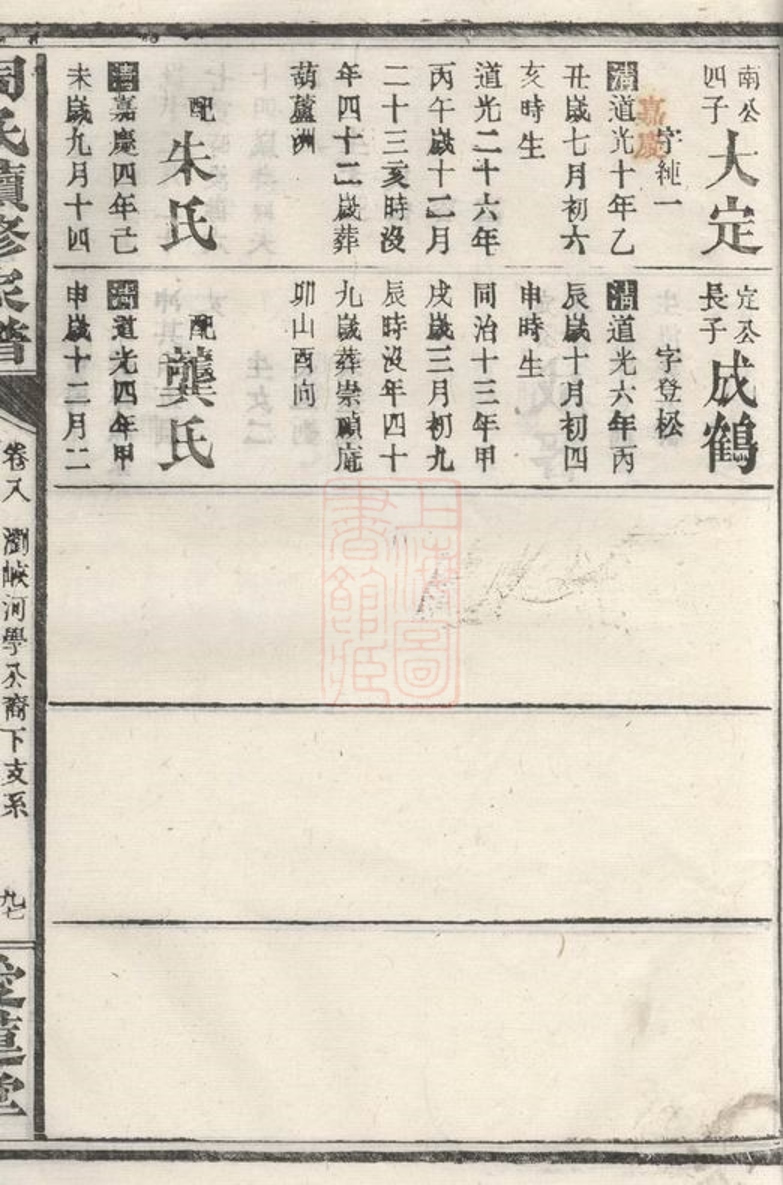 南公
四子
大定
字純一
嘉慶
清道光十年乙
丑歲七月初六
亥時生
道光二十六年
丙午歲十二月
二十三亥時沒
年四十二歲葬
葫蘆洲
配
朱氏
清嘉慶四年己
未歲九月十四
定公
長子
成鶴
字登松
清道光六年丙
辰歲十月初四
申時生
同治十三年甲
戌歲三月初九
辰時沒年四十
九歲葬崇頤庵
卯山酉向
配
龔氏
清道光四年甲
申歲十二月二
周氏續修家譜
卷八
瀏峽河學公裔下支系
九七
上海圖書館